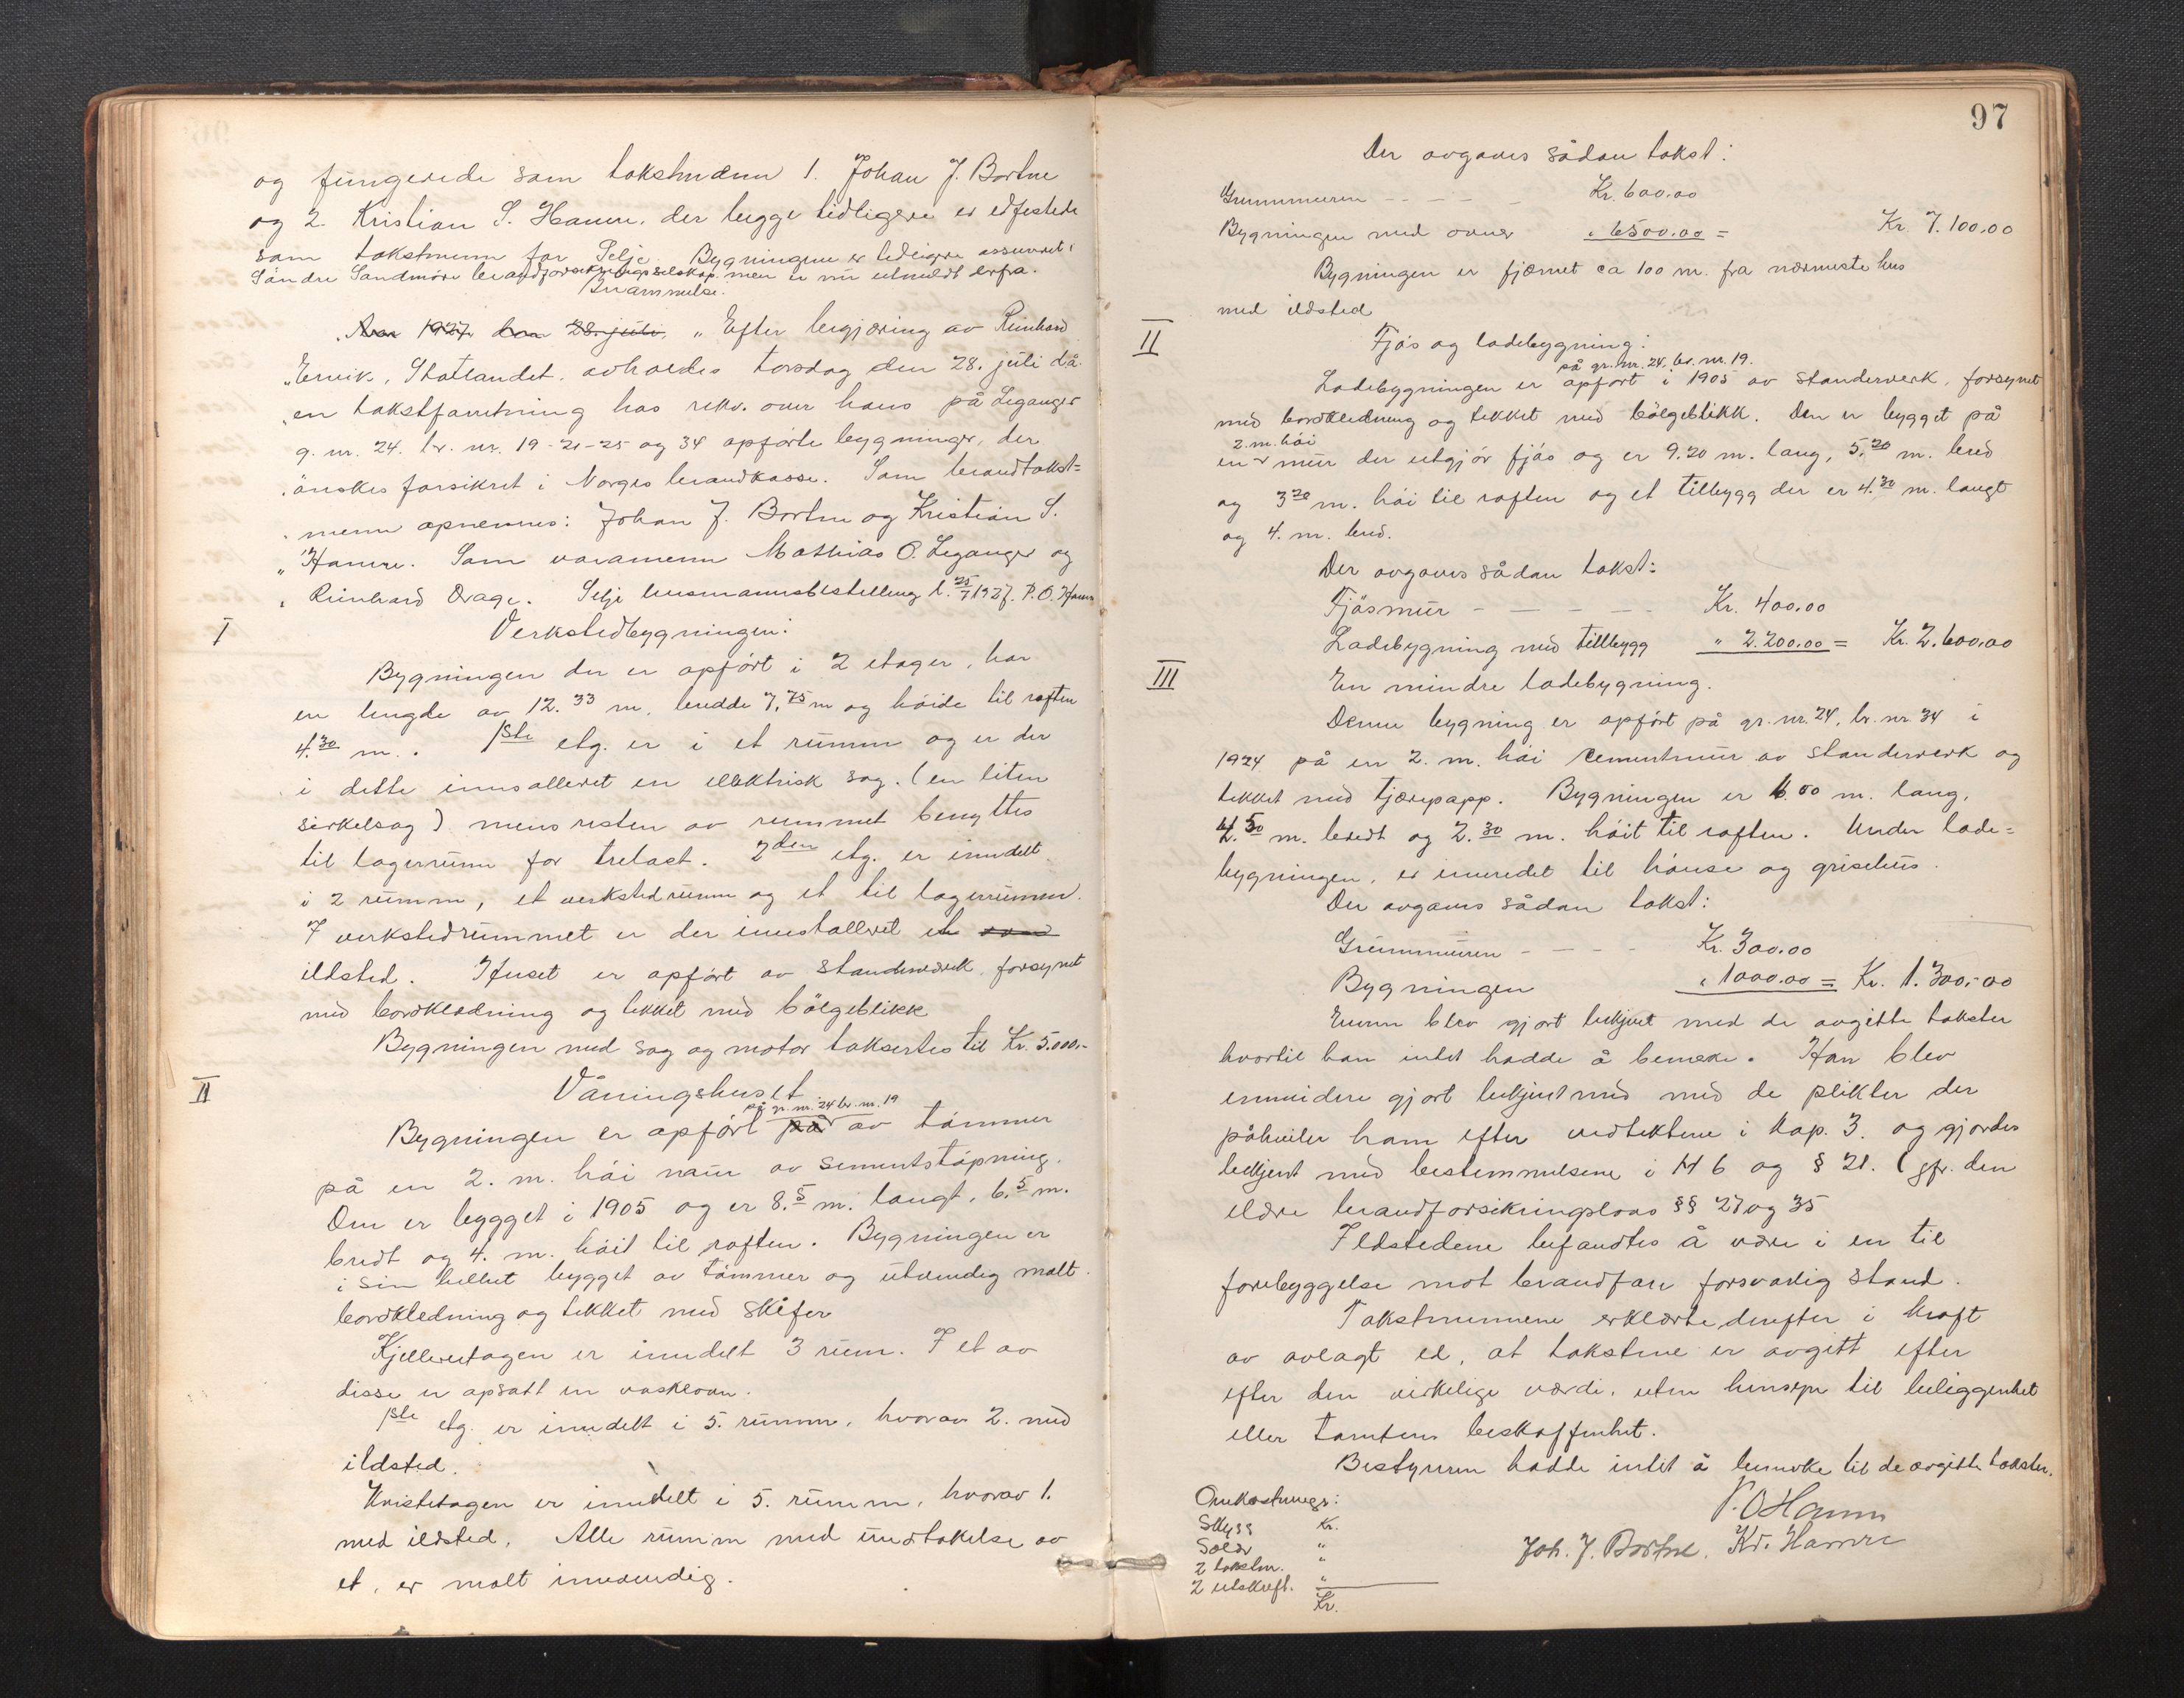 og fungerede som takstmænn 1. Johan J. Bortne
og 2. Kristian S. Hamre, der begge tidligere er edfestede
som takstmenn for Selje. Bygningene er tidligere assurert i
Söndre Sandmöre brandforsikringsselskap, men er nu utmeldt derfra.
Bnammelse.
Aar 1927 den 28. juli, „Efter begjæring av Reinhard
„Ervik, Statlandet, avholdes torsdag den 28. juli då.
„en takstforretning hos rekv. over hans på Leganger
g. nr. 24. br. nr. 19-21-25 og 34 opförte bygninger, der
„önskes forsikret i Norges brandkasse. Som brandtakst=
„menn opnevnes: Johan J. Bortne og Kristian S.
„Hamre. Som varamenn Mathias O. Leganger og
„Reinhard Drage. Selje lensmannsbestilling d. 25/7 1927. P. O. Hamre
I Verkstedbygningen:
Bygningen der er opfört i 2 etager, har
en lengde av 12.33 m, bredde 7,75 m og höide til raften
4.30 m. 1ste etg. er i et rumm og er der
i dette innsalleret en elektrisk sag. (en liten
sirkelsag) mens resten av rummet benyttes
til lagerrumm for trelast. 2den etg. er inndelt
i 2 rumm, et verkstedrumm og et til lagerrumm.
I verkstedrummet er der innstalleret et
ildsted. Huset er opfört av standerverk, forsynet
med bordkledning og tekket med bölgeblikk
Bygningen med sag og motor taksertes til Kr. 5.000.-
II Våningshuset
på gr. nr. 24 br. nr. 19
Bygningen er opfört på av tömmer
på en 2. m. höi mur av sementstöpning.
Den er bygget i 1905 og er 8.5 m. langt, 6.5 m.
bredt og 4. m. höit til raften. Bygningen er
i sin helhet bygget av tömmer og utvendig malt
bordkledning og tekket med skifer
Kjelleretagen er inndelt 3 rum. I et av
disse er opsatt en vaskeovn.
1ste etg. er inndelt i 5. rumm, hvorav 2. med
ildsted.
Kvistetagen er inndelt i 5. rumm, hvorav 1.
med ildsted. Alle rumm med undtakelse av
et, er malt innvendig.
97
Der avgaves sådan takst:
Grunnmuren - - - - Kr. 600.00
Bygningen med ovner „ 6500.00 = Kr. 7.100.00
Bygningen er fjærnet ca 100 m. fra nærmeste hus
med ildsted
II Fjös og ladebygning:
på gr. nr. 24, br. nr. 19.
Ladebygningen er opfört i 1905 av standerverk, forsynet
med bordkledning og tekket med bölgeblikk. Den er bygget på
2. m. höi
en mur der utgjör fjös og er 9.20 m. lang, 5.20 m. bred
og 3.20 m. höi til raften og et tilbygg der er 4.30 m. langt
og 4. m. bred.
Der avgaves sådan takst:
Fjösmur - - - - - Kr. 400.00
Ladebygning med tillbygg „ 2.200.00 = Kr. 2.600.00
III En mindre ladebygning.
Denne bygning er opfört på gr. nr. 24, br. nr 34 i
1924 på en 2. m. höi cementmur av standerverk og
tekket med tjærepapp. Bygningen er 6.00 m. lang,
4.50 m. bredt og 2.30 m. höit til raften. Under lade=
bygningen, er innredet til hönse og grisehus.
Der avgaves sådan takst:
Grunnmuren - - - - Kr. 300.00
Bygningen „ 1000.00 = Kr. 1.300.00
Eieren blev gjort bekjent med de avgitte takster
hvortil han intet hadde å bemerke. Han blev
ennvidere gjort bekjent med med de plikter der
påhviler ham efter vedtektene i kap. 3. og gjordes
bekjent med bestemmelsene i 6 og § 21. (jfr. den
eldre brandforsikringslovs §§ 27 og 35
Ildstedene befandtes å være i en til
forebyggelse mot brandfare forsvarlig stand.
Takstmennene erklærte derefter i kraft
av avlagt ed, at takstene er avgitt efter
efter den virkelige værdi, uten hensyn til beliggenhet
eller tomtens beskaffenhet.
Bestyreren hadde intet å bemerke til de avgitte takster.
P. O Hamre
Joh. J. Bortne. Kr. Hamre
Omkostninger:
Skyss Kr.
Salær „
2 takstm. „
2 utskrift. „
Kr.